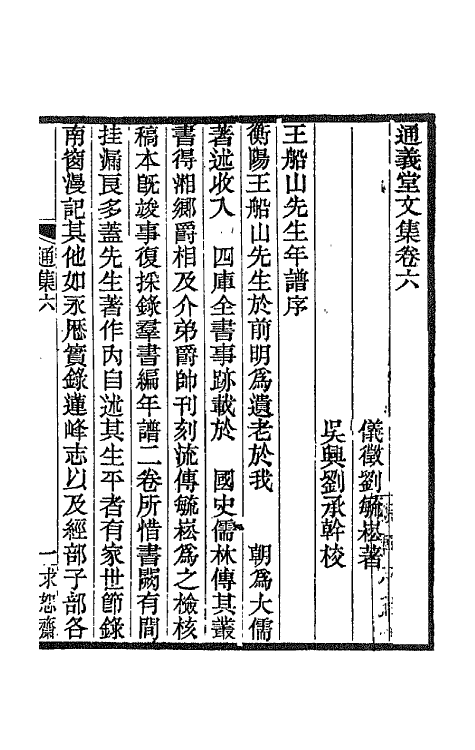 通義堂文集卷六
儀徵劉毓崧著
吳興劉承幹校
王船山先生年譜序
衡陽王船山先生於前明爲遺老於我 朝爲大儒
著述收入 四庫全書事跡載於 國史儒林傳其叢
書得湘鄉爵相及介弟爵帥刊刻流傳毓崧爲之檢核
稿本旣竣事復採錄羣書編年譜二卷所惜書闕有間
挂漏良多蓋先生著作內自述其生平者有家世節錄
南窗漫記其他如永厯實錄蓮峰志以及經部子部各
通集六
一
求恕齋